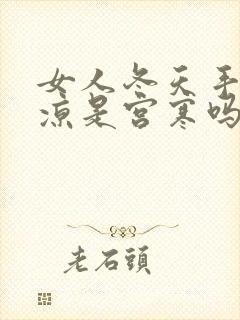 女人冬天手
凉是宫寒吗
老石頭